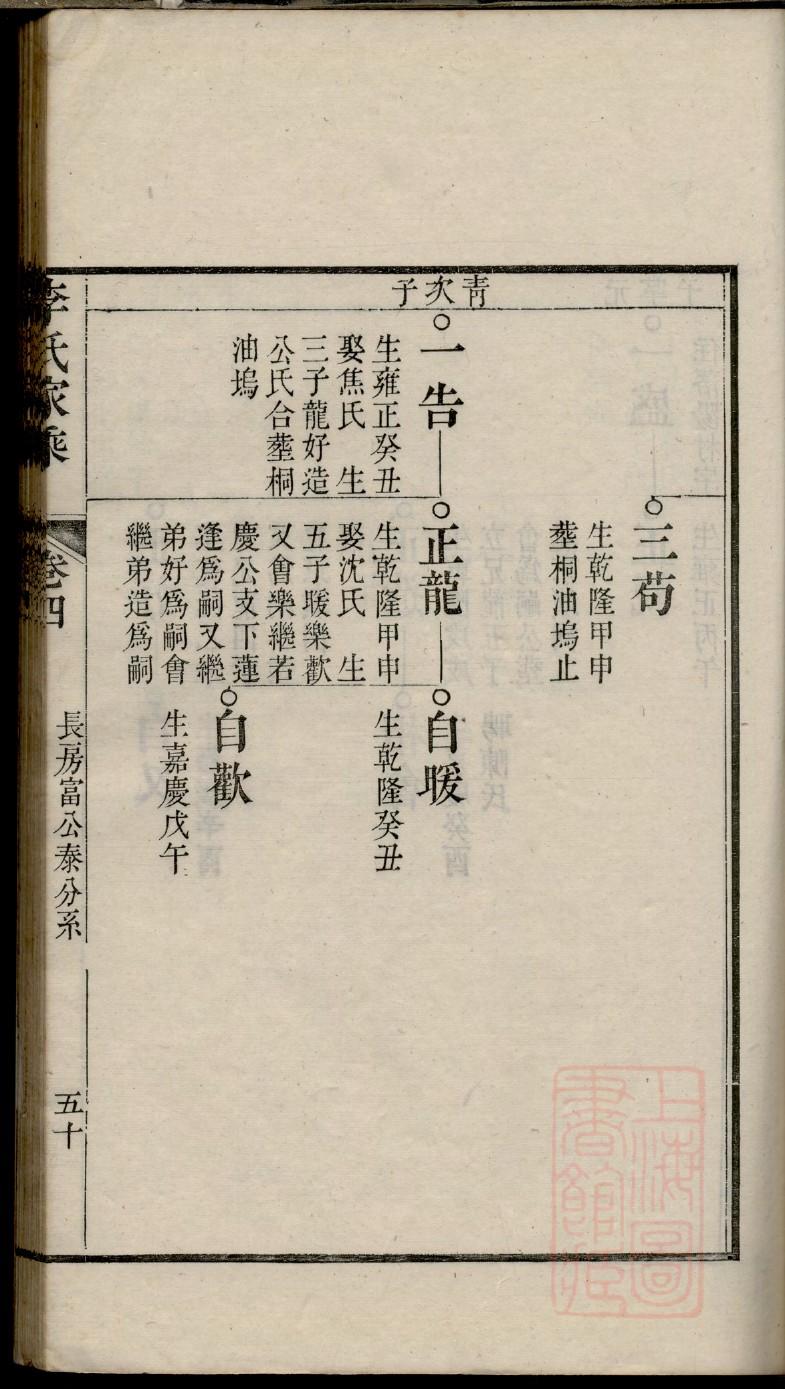 三苟
生乾隆甲申
塟桐油塢止
青次子
一告
生雍正癸丑
娶焦氏 生
三子龍好造
公氏合塟桐
油塢
正龍
生乾隆甲申
娶沈氏 生
五子暖樂歡
又會樂繼若
慶公支下蓮
逢爲嗣又繼
弟好爲嗣會
繼弟造爲嗣
自暖
生乾隆癸丑
自歡
生嘉慶戊午
李氏家乘
卷四
長房富公泰分系
五十
上海圖
書館藏